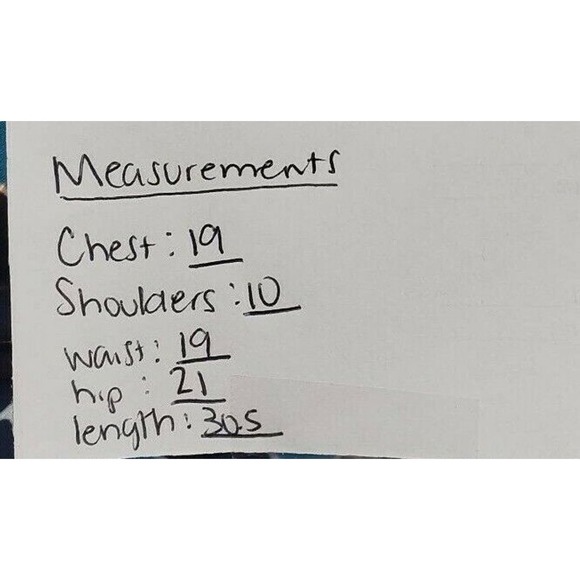 Measurements
Chest: 19
Shoulders: 10
waist: 19
hip: 21
length: 30.5